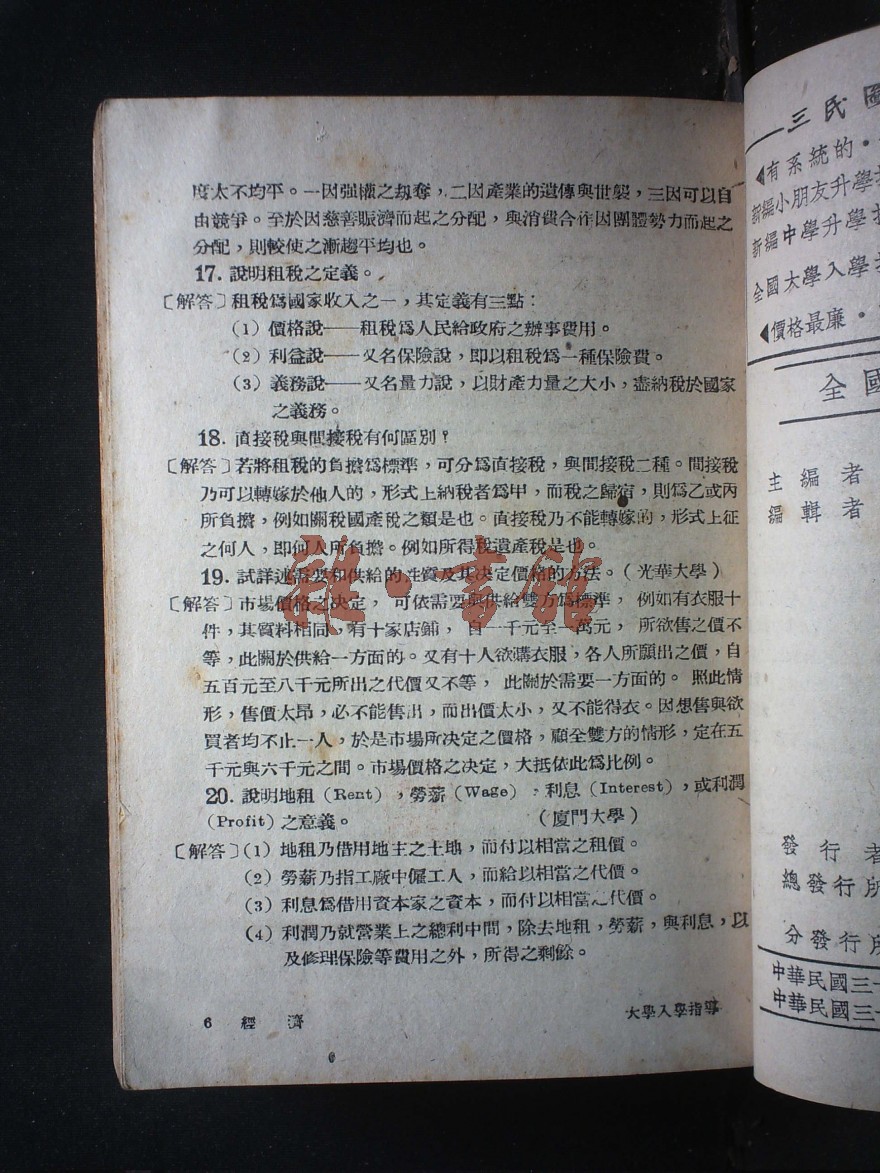 度太不均平。一因强權之刼奪，二因產業的遺傳與世襲，三因可以自
由競爭。至於因慈善賑濟而起之分配，與消費合作因團體勢力而起之
分配，則較使之漸趨平均也。
17. 說明租稅之定義。
〔解答〕租稅爲國家收入之一，其定義有三點：
（1）價格說——租稅爲人民給政府之辦事費用。
（2）利益說——又名保險說，即以租稅爲一種保險費。
（3）義務說——又名量力說，以財產力量之大小，盡納稅於國家
之義務。
18. 直接稅與間接稅有何區別？
〔解答〕若將租稅的負擔爲標準，可分爲直接稅，與間接稅二種。間接稅
乃可以轉嫁於他人的，形式上納稅者爲甲，而稅之歸宿，則爲乙或丙
所負擔，例如關稅國產稅之類是也。直接稅乃不能轉嫁的，形式上征
之何人，即何人所負擔。例如所得稅遺產稅是也。
19. 試詳述需要和供給的性質及其決定價格的方法。（光華大學）
〔解答〕市場價格之決定，可依需要與供給雙方爲標準，例如有衣服十
件，其質料相同，有十家店鋪，自一千元至一萬元，所欲售之價不
等，此關於供給一方面的。又有十人欲購衣服，各人所願出之價，自
五百元至八千元所出之代價又不等，此關於需要一方面的。照此情
形，售價太昂，必不能售出，而出價太小，又不能得衣。因想售與欲
買者均不止一人，於是市場所決定之價格，顧全雙方的情形，定在五
千元與六千元之間。市場價格之決定，大抵依此爲比例。
20. 說明地租（Rent），勞薪（Wage），利息（Interest），或利潤
（Profit）之意義。（廈門大學）
〔解答〕（1）地租乃借用地主之土地，而付以相當之租價。
（2）勞薪乃指工廠中僱工人，而給以相當之代價。
（3）利息爲借用資本家之資本，而付以相當之代價。
（4）利潤乃就營業上之總利中間，除去地租，勞薪，與利息，以
及修理保險等費用之外，所得之剩餘。
6 經濟
大學入學指導
三民圖
◀有系統的·
新編小朋友升學
新編中學升學
全國大學入學
◀價格最廉·
全國
主編者
編輯者
發行者
總發行所
分發行所
中華民國三十
中華民國三十
雜·書館